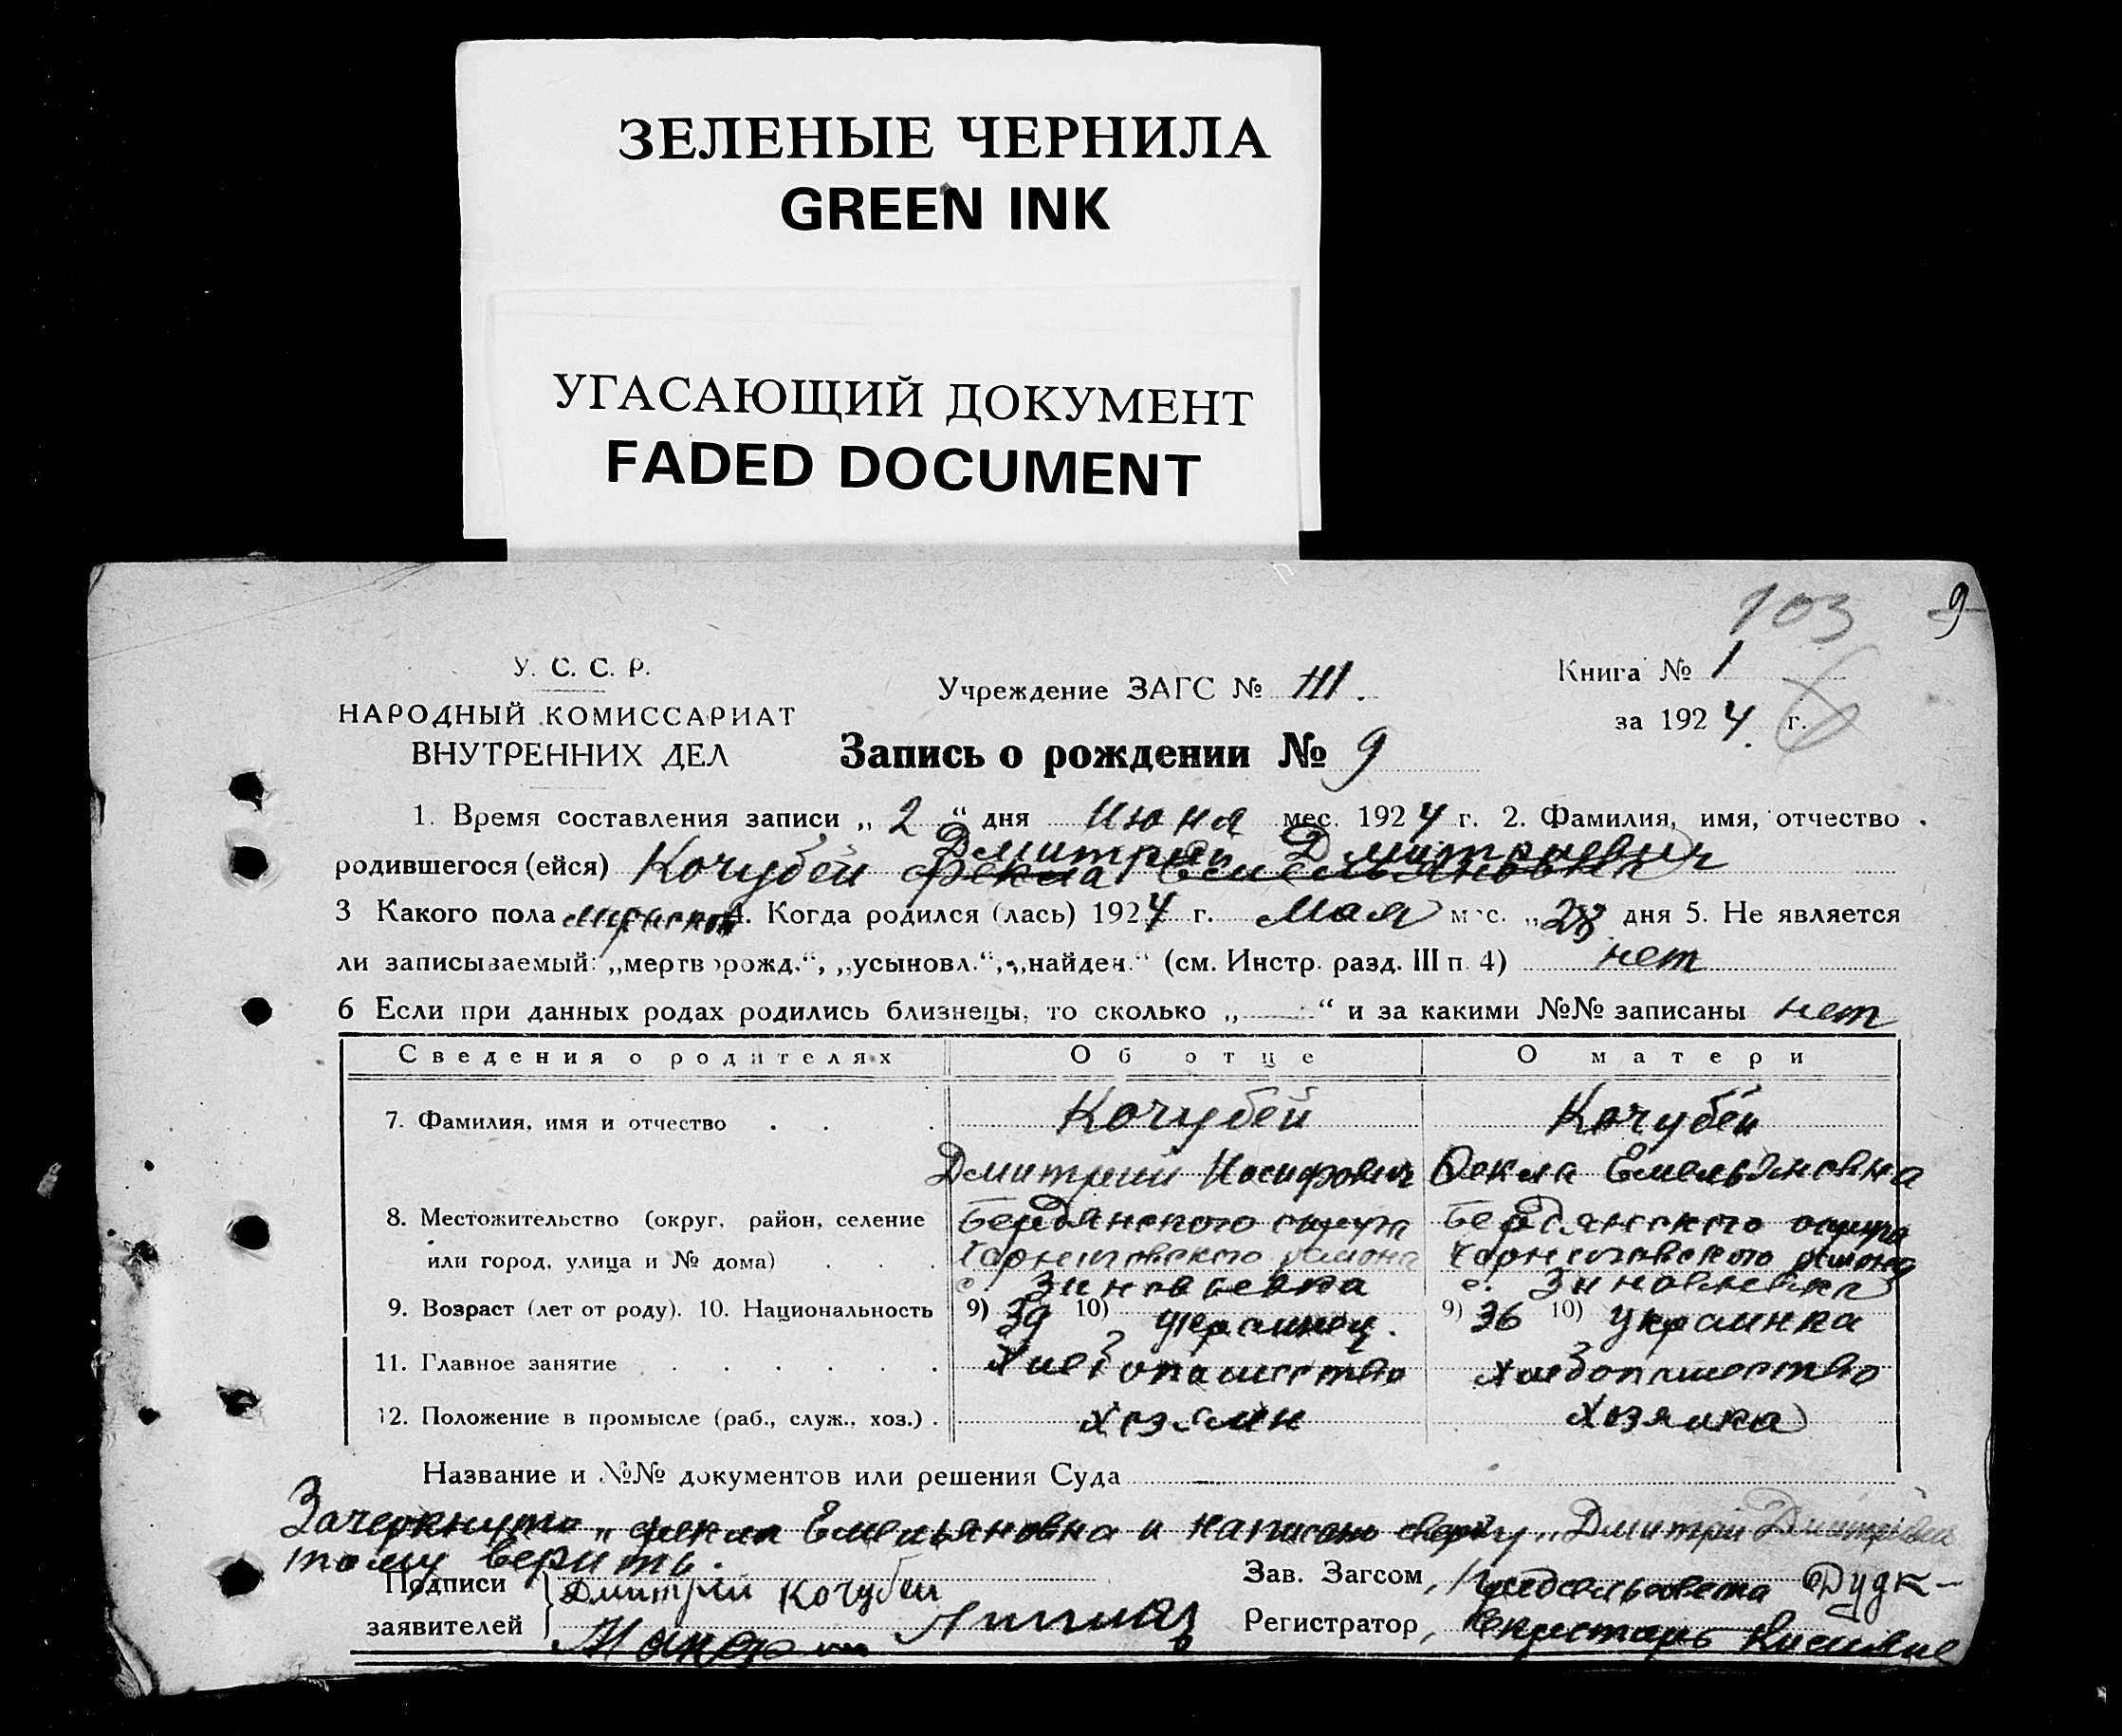 ЗЕЛЕНЫЕ ЧЕРНИЛА
GREEN INK
УГАСАЮЩИЙ ДОКУМЕНТ
FADED DOCUMENT
103 9
У. С. С. Р.
НАРОДНЫЙ КОМИССАРИАТ
ВНУТРЕННИХ ДЕЛ
Учреждение ЗАГС № III.
Книга № 1
за 1924 г.
Запись о рождении № 9
1. Время составления записи „2“ дня Июня мес. 1924 г. 2. Фамилия, имя, отчество
Дмитрий Дмитриевич
родившегося (ейся) Кочубей Фекла Емельяновна
3 Какого пола мужской 4. Когда родился (лась) 1924 г. Мая мес. „28 дня 5. Не является
ли записываемый: „мертворожд.“, „усыновл.“, „найден.“ (см. Инстр. разд. III п. 4) нет
6 Если при данных родах родились близнецы, то сколько „ “ и за какими №№ записаны нет
Сведения о родителях Об отце О матери
7. Фамилия, имя и отчество Кочубей Кочубей
Дмитрий Иосифович Фекла Емельяновна
8. Местожительство (округ, район, селение Бердянского округа Бердянского округа
или город, улица и № дома) Черниговского района Черниговского района
с. Зиновьевка с. Зиновьевка
9. Возраст (лет от роду). 10. Национальность 9) 39 10) украинец. 9) 36 10) украинка
11. Главное занятие Хлебопашество хлебопашество
12. Положение в промысле (раб., служ., хоз.) хозяин хозяйка
Название и №№ документов или решения Суда
Зачеркнуто „фекла Емельяновна и написано сверху „Дмитрий Дмитриевич
тому верить.
Подписи Дмитрій Кочубей Зав. Загсом, Предсельсовета Дудк-
заявителей Регистратор, Секретарь